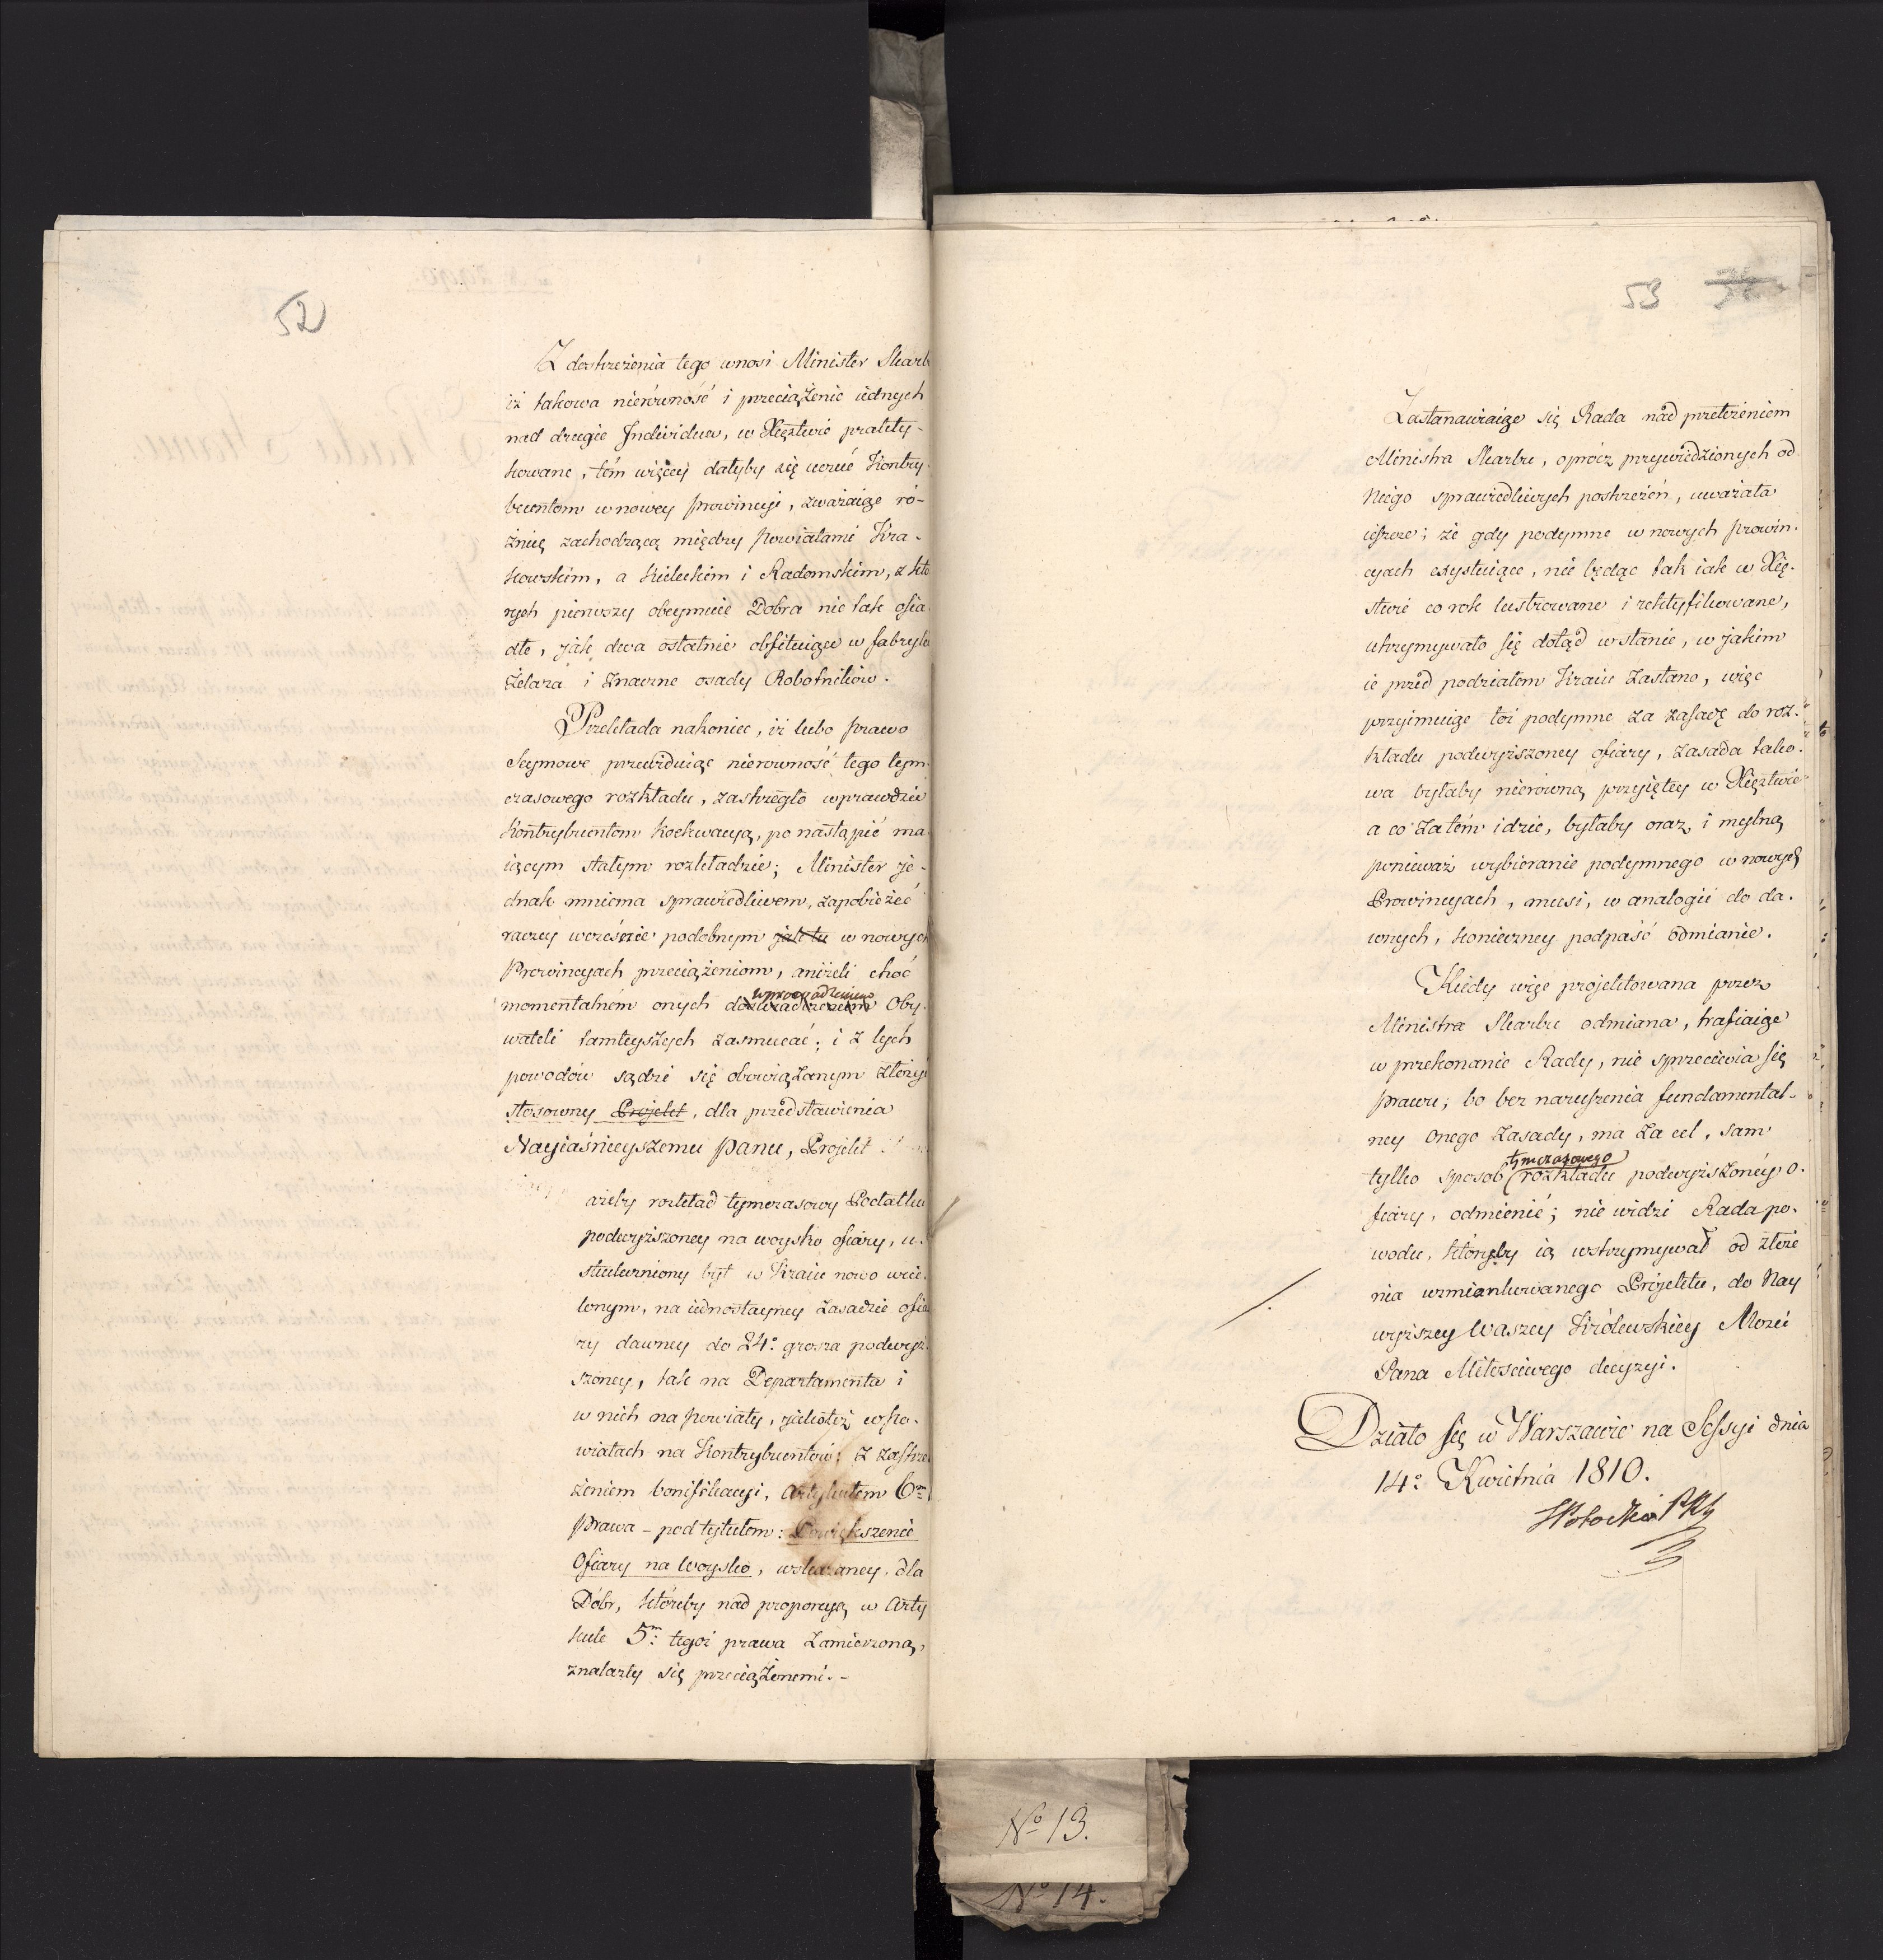 52
Z dostrzeżenia tego wnosi Minister Skarb
iż takowa nierówność i przeciążenie iednych
nad drugie Individua, w Xięztwie prakty-
kowane, tém więcey dałyby się uczuć Kontry
buentom w nowey Prowincyi, zważaiąc ró-
żnicę zachodzącą między Powiatami Kra-
kowskim, a Kieleckim i Radomskim, z któ
rych pierwszy obeymuie Dobra nie tak osia
dłe, jak dwa ostatnie obfituiące w fabryki
żelaza i znaczne osady Robotników.
Przekłada nakoniec, iż lubo Prawo
Seymowe przewiduiąc nierowność tego tym-
czasowego rozkładu, zastrzegło wprawdzie
Kontrybuentom Koekwacyą, po nastąpić ma
iącym stałym rozkładzie; Minister je-
dnak mniema sprawiedliwem, zapobieżeć
raczey wcześnie podobnym jak tu w nowych
Prowincyach przeciążeniom, aniżeli choć
wprowadzeniem
momentalném onych doświadczeniem Oby-
wateli tamteyszych zasmucać; i z tych
powodów sądzi się obowiązanym złożyć
stosowny Projekt, dla przedstawienia
Nayiaśnieyszemu Panu, Projekt
ażeby rozkład tymczasowy Podatku
podwyższoney na woysko ofiary, u-
skutczniony był w Kraiu nowo wcie-
lonym, na iednostayney zasadzie ofia
ry dawney do 24º grosza podwyż-
szoney, tak na Departamenta i
w nich na Powiaty, jakotéż w Po-
wiatach na Kontrybuentów; z zastrze
żeniem bonifikacyi, Artykułem 6m
Prawa – pod tytułem: Powiększenie
Ofiary na Woysko, wskazaney, dla
Dóbr, któreby nad proporcyą w Arty
kule 5m tegoż prawa zamierzoną,
znalazły się przeciążonemi. –
53
Zastanawiaiąc się Rada nad przełożeniem
Ministra Skarbu, oprócz przywiedzionych od
Niego sprawiedliwych postrzeżeń, uważała
ieszcze; że gdy podymne w nowych Prowin-
cyach exystuiące, nie będąc tak iak w Xię-
stwie co rok lustrowane i rektyfikowane,
utrzymywało się dotąd w stanie, w jakim
ie przed podziałem Kraiu zastano, więc
przyimuiąc toż podymne za zasadę do roz-
kładu podwyższoney ofiary, zasada tako-
wa byłaby nierówną przyiętey w Xięztwie
a co zatém idzie, byłaby oraz i mylną
ponieważ wybieranie podymnego w nowych
Prowincyach, musi, w analogii do da-
wnych, konieczney podpaść odmianie.
Kiedy więc projektowana przez
Ministra Skarbu odmiana, trafiaiąc
w przekonanie Rady, nie sprzeciwia się
Prawu; bo bez naruszenia fundamental-
ney onego zasady, ma za cel, sam
tymczasowego
tylko sposob rozkładu podwyższonéy o-
fiary, odmienić; nie widzi Rada po-
wodu, któryby ią wstrzymywał od złoże
nia wzmiankowanego Projektu, do Nay
wyższey Waszey Królewskiey Mości
Pana Miłościwego decyzyi.
Działo się w Warszawie na Sessyi dnia
14º Kwietnia 1810.
Nº 13.
Nº 14.